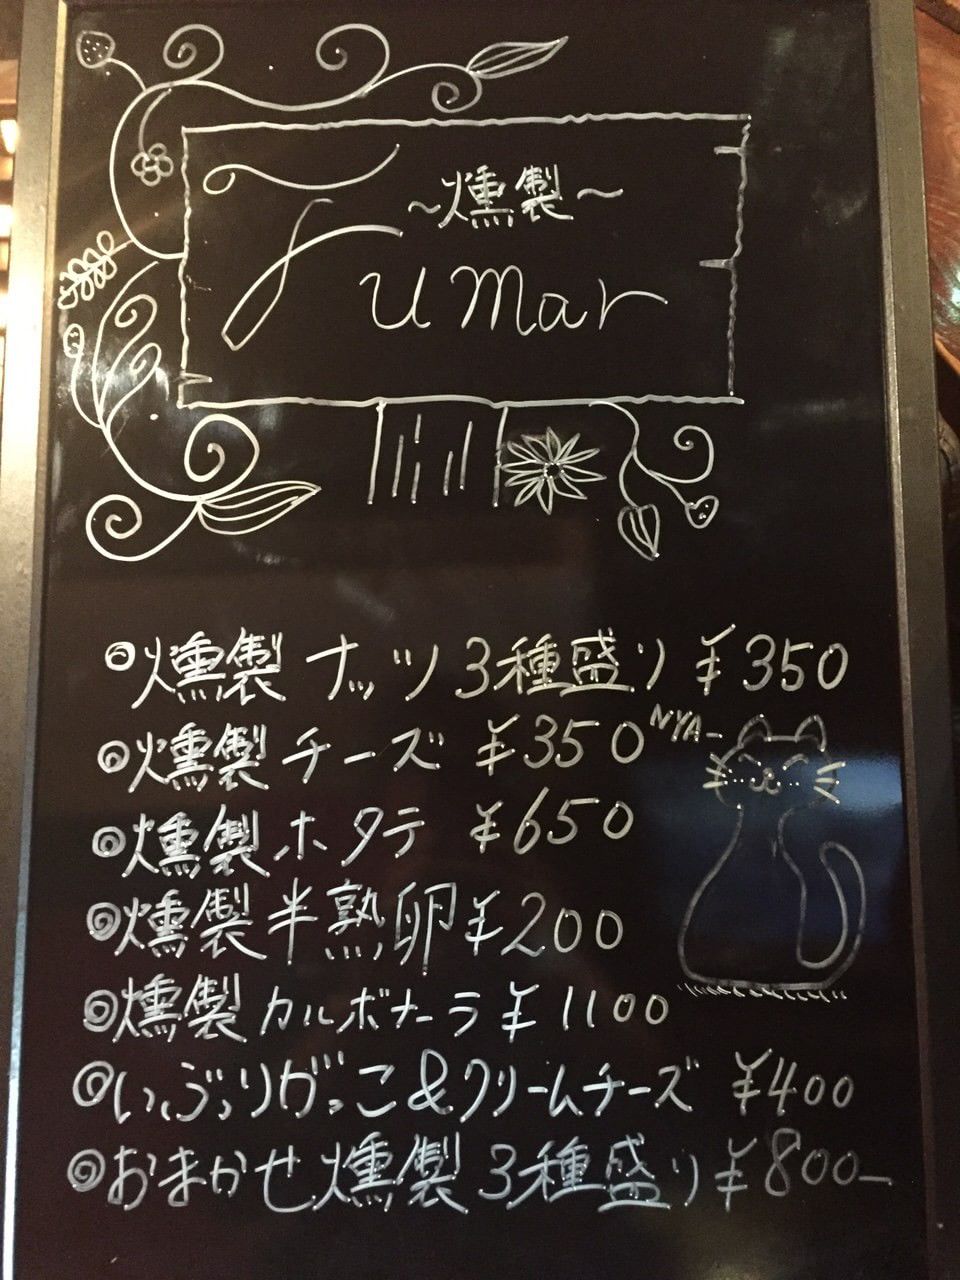 ～燻製～
Fumar
◎燻製ナッツ3種盛り ¥350
◎燻製チーズ ¥350
NYA-
◎燻製ホタテ ¥650
◎燻製半熟卵¥200
◎燻製カルボナーラ ¥1100
◎いぶりがっこ&クリームチーズ ¥400
◎おまかせ燻製3種盛り¥800-